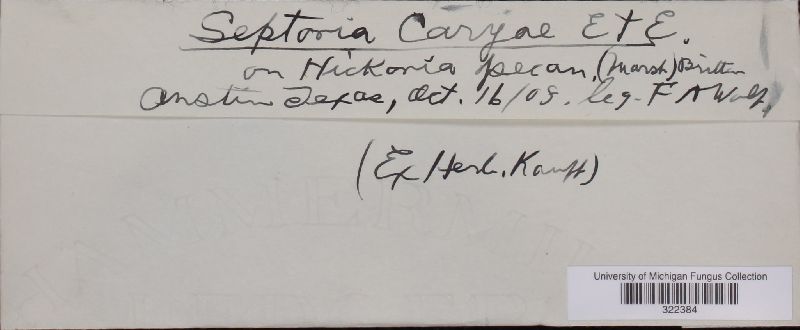 Septoria Caryae E & E.
on Hickoria pecan, (Marsh) Britton
Austin Texas, Oct. 16/09. leg. F A Wolf,
(Ex Herb. Kauff)
University of Michigan Fungus Collection
322384